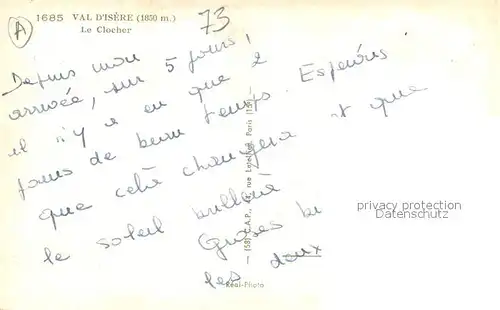 1685 VAL D'ISÈRE (1850 m.)
Le Clocher
A
73
Depuis mon
arrivée, sur 5 jours,
il n'y a eu que 2
jours de beau temps. Espérons
que cela changera et que
le soleil brillera
Grosses bises
les doux
(58) C.A.P., rue Paris (15e)
Réel-Photo
privacy protection
Datenschutz